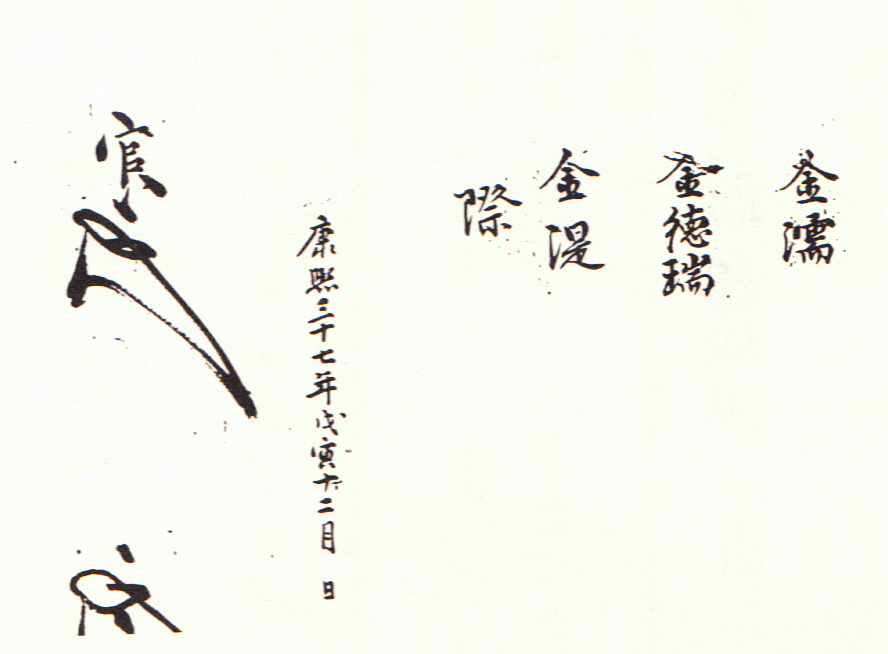 金濡
金德瑞
金湜
際
康熙三十七年戊寅十二月 日
官